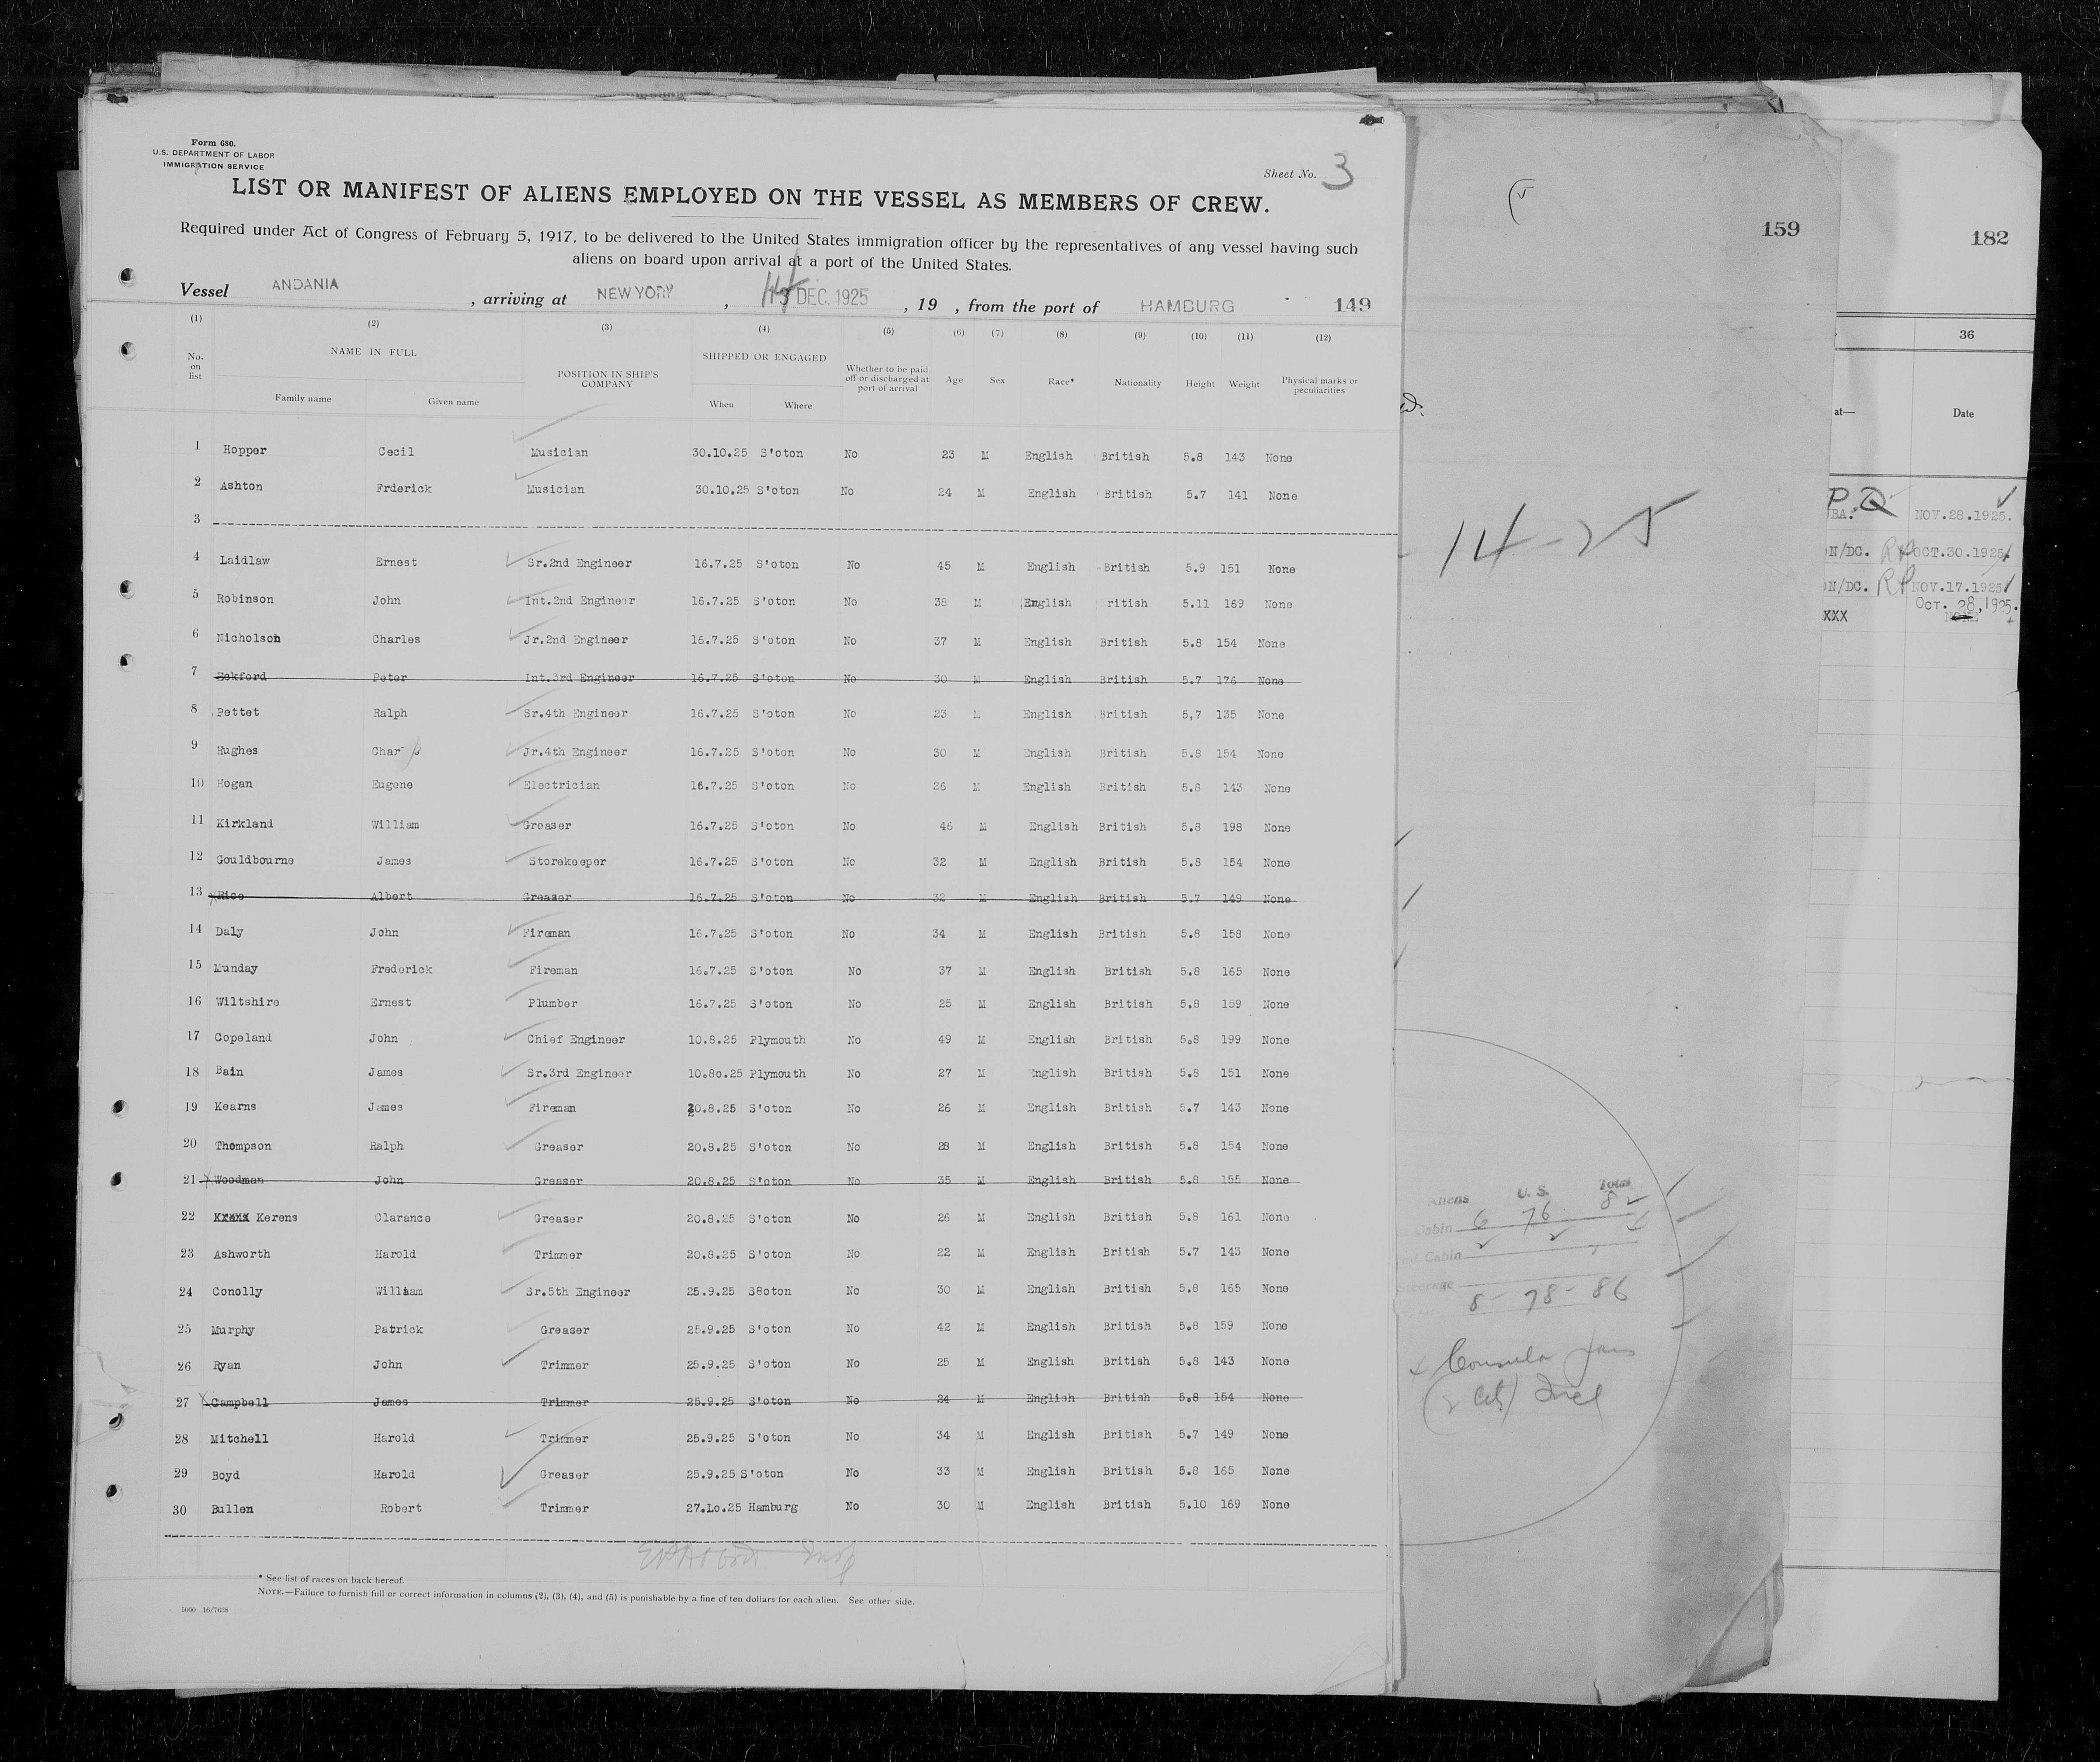 Form 680.
U.S. DEPARTMENT OF LABOR
IMMIGRATION SERVICE
Sheet No. 3
LIST OR MANIFEST OF ALIENS EMPLOYED ON THE VESSEL AS MEMBERS OF CREW.
Required under Act of Congress of February 5, 1917, to be delivered to the United States immigration officer by the representatives of any vessel having such
aliens on board upon arrival at a port of the United States.
Vessel ANDANIA, arriving at NEW YORK, 14 DEC. 1925, 19 , from the port of HAMBURG 149
(1) (2) (3) (4) (5) (6) (7) (8) (9) (10) (11) (12)
No. on list NAME IN FULL POSITION IN SHIP'S COMPANY SHIPPED OR ENGAGED Whether to be paid off or discharged at port of arrival Age Sex Race* Nationality Height Weight Physical marks or peculiarities
Family name Given name When Where
1 Hopper Cecil Musician 30.10.25 S'oton No 23 M English British 5.8 143 None
2 Ashton Frderick Musician 30.10.25 S'oton No 24 M English British 5.7 141 None
3
4 Laidlaw Ernest Sr.2nd Engineer 16.7.25 S'oton No 45 M English British 5.9 151 None
5 Robinson John Int.2nd Engineer 16.7.25 S'oton No 38 M English ritish 5.11 169 None
6 Nicholson Charles Jr.2nd Engineer 16.7.25 S'oton No 37 M English British 5.8 154 None
7 Eckford Peter Int.3rd Engineer 16.7.25 S'oton No 30 M English British 5.7 176 None
8 Pettet Ralph Sr.4th Engineer 16.7.25 S'oton No 23 M English British 5,7 135 None
9 Hughes Char Jr.4th Engineer 16.7.25 S'oton No 30 M English British 5.8 154 None
10 Hogan Eugene Electrician 16.7.25 S'oton No 26 M English British 5.8 143 None
11 Kirkland William Greaser 16.7.25 S'oton No 46 M English British 5.8 198 None
12 Gouldbourne James Storekeeper 16.7.25 S'oton No 32 M English British 5.8 154 None
13 Rice Albert Greaser 16.7.25 S'oton No 32 M English British 5.7 149 None
14 Daly John Fireman 16.7.25 S'oton No 34 M English British 5.8 158 None
15 Munday Frederick Fireman 16.7.25 S'oton No 37 M English British 5.8 165 None
16 Wiltshire Ernest Plumber 16.7.25 S'oton No 25 M English British 5.8 159 None
17 Copeland John Chief Engineer 10.8.25 Plymouth No 49 M English British 5.8 199 None
18 Bain James Sr.3rd Engineer 10.8o.25 Plymouth No 27 M English British 5.8 151 None
19 Kearns James Fireman 20.8.25 S'oton No 26 M English British 5.7 143 None
20 Thompson Ralph Greaser 20.8.25 S'oton No 28 M English British 5.8 154 None
21 Woodman John Greaser 20.8.25 S'oton No 35 M English British 5.8 155 None
22 Kerens Clarance Greaser 20.8.25 S'oton No 26 M English British 5.8 161 None
23 Ashworth Harold Trimmer 20.8.25 S'oton No 22 M English British 5.7 143 None
24 Conolly William Sr.5th Engineer 25.9.25 S8oton No 30 M English British 5.8 165 None
25 Murphy Patrick Greaser 25.9.25 S'oton No 42 M English British 5.8 159 None
26 Ryan John Trimmer 25.9.25 S'oton No 25 M English British 5.8 143 None
27 Campbell James Trimmer 25.9.25 S'oton No 24 M English British 5.8 154 None
28 Mitchell Harold Trimmer 25.9.25 S'oton No 34 M English British 5.7 149 None
29 Boyd Harold Greaser 25.9.25 S'oton No 33 M English British 5.8 165 None
30 Bullen Robert Trimmer 27.Lo.25 Hamburg No 30 M English British 5.10 169 None
* See list of races on back hereof.
NOTE.—Failure to furnish full or correct information in columns (2), (3), (4), and (5) is punishable by a fine of ten dollars for each alien. See other side.
5000 16/7638
159
14-25
Aliens U.S. Total
Cabin 6 76 82
Cabin 2 2
Steerage
8 - 78 - 86
182
36
at— Date
P.Q
BA. NOV.28.1925.
N/DC. RP OCT.30.1925
N/DC. RP NOV.17.1925
OCT. 28, 1925.
XXX